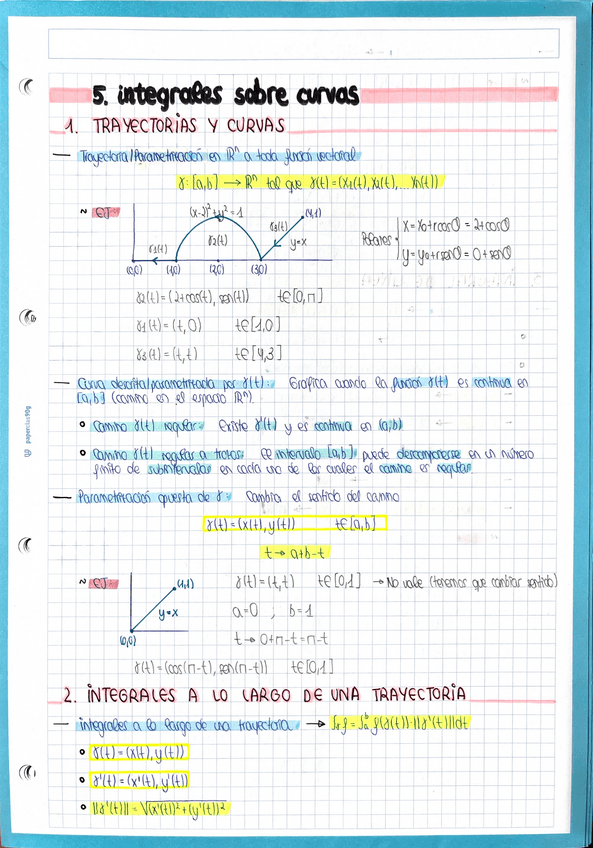 5. integrales sobre curvas
1. TRAYECTORIAS Y CURVAS
— Trayectoria/Parametrización en ℝⁿ a toda función vectorial
γ: [a,b] → ℝⁿ tal que γ(t) = (x₁(t), x₂(t),... xₙ(t))
~ EJ:
(x-2)²+y²=1
(4,1)
γ3(t)
γ2(t)
y=x
γ1(t)
(0,0) (1,0) (2,0) (3,0)
Polares
x = x₀+rcosθ = 2+cosθ
y = y₀+rsenθ = 0+senθ
γ2(t) = (2+cos(t), sen(t)) t∈[0,π]
γ1(t) = (t, 0) t∈[1,0]
γ3(t) = (t, t) t∈[4,3]
— Curva descrita/parametrizada por γ(t): Gráfica cuando la función γ(t) es continua en
[a,b] (camino en el espacio ℝⁿ).
• Camino γ(t) regular: Existe γ'(t) y es continua en (a,b)
• Camino γ(t) regular a trozos: El intervalo [a,b] puede descomponerse en un número
finito de subintervalos en cada uno de los cuales el camino es regular.
— Parametrización opuesta de γ: Cambia el sentido del camino
γ(t) = (x(t), y(t)) t∈[a,b]
t → a+b-t
~ EJ:
(1,1)
y=x
(0,0)
γ(t) = (t,t) t∈[0,1] → No vale (tenemos que cambiar sentido)
a=0 ; b=1
t → 0+π-t = π-t
γ(t) = (cos(π-t), sen(π-t)) t∈[0,1]
2. INTEGRALES A LO LARGO DE UNA TRAYECTORIA
— integrales a lo largo de una trayectoria: → ∫γ f = ∫ₐᵇ f(γ(t))·||γ'(t)||dt
• γ(t) = (x(t), y(t))
• γ'(t) = (x'(t), y'(t))
• ||γ'(t)|| = √(x'(t))²+(y'(t))²